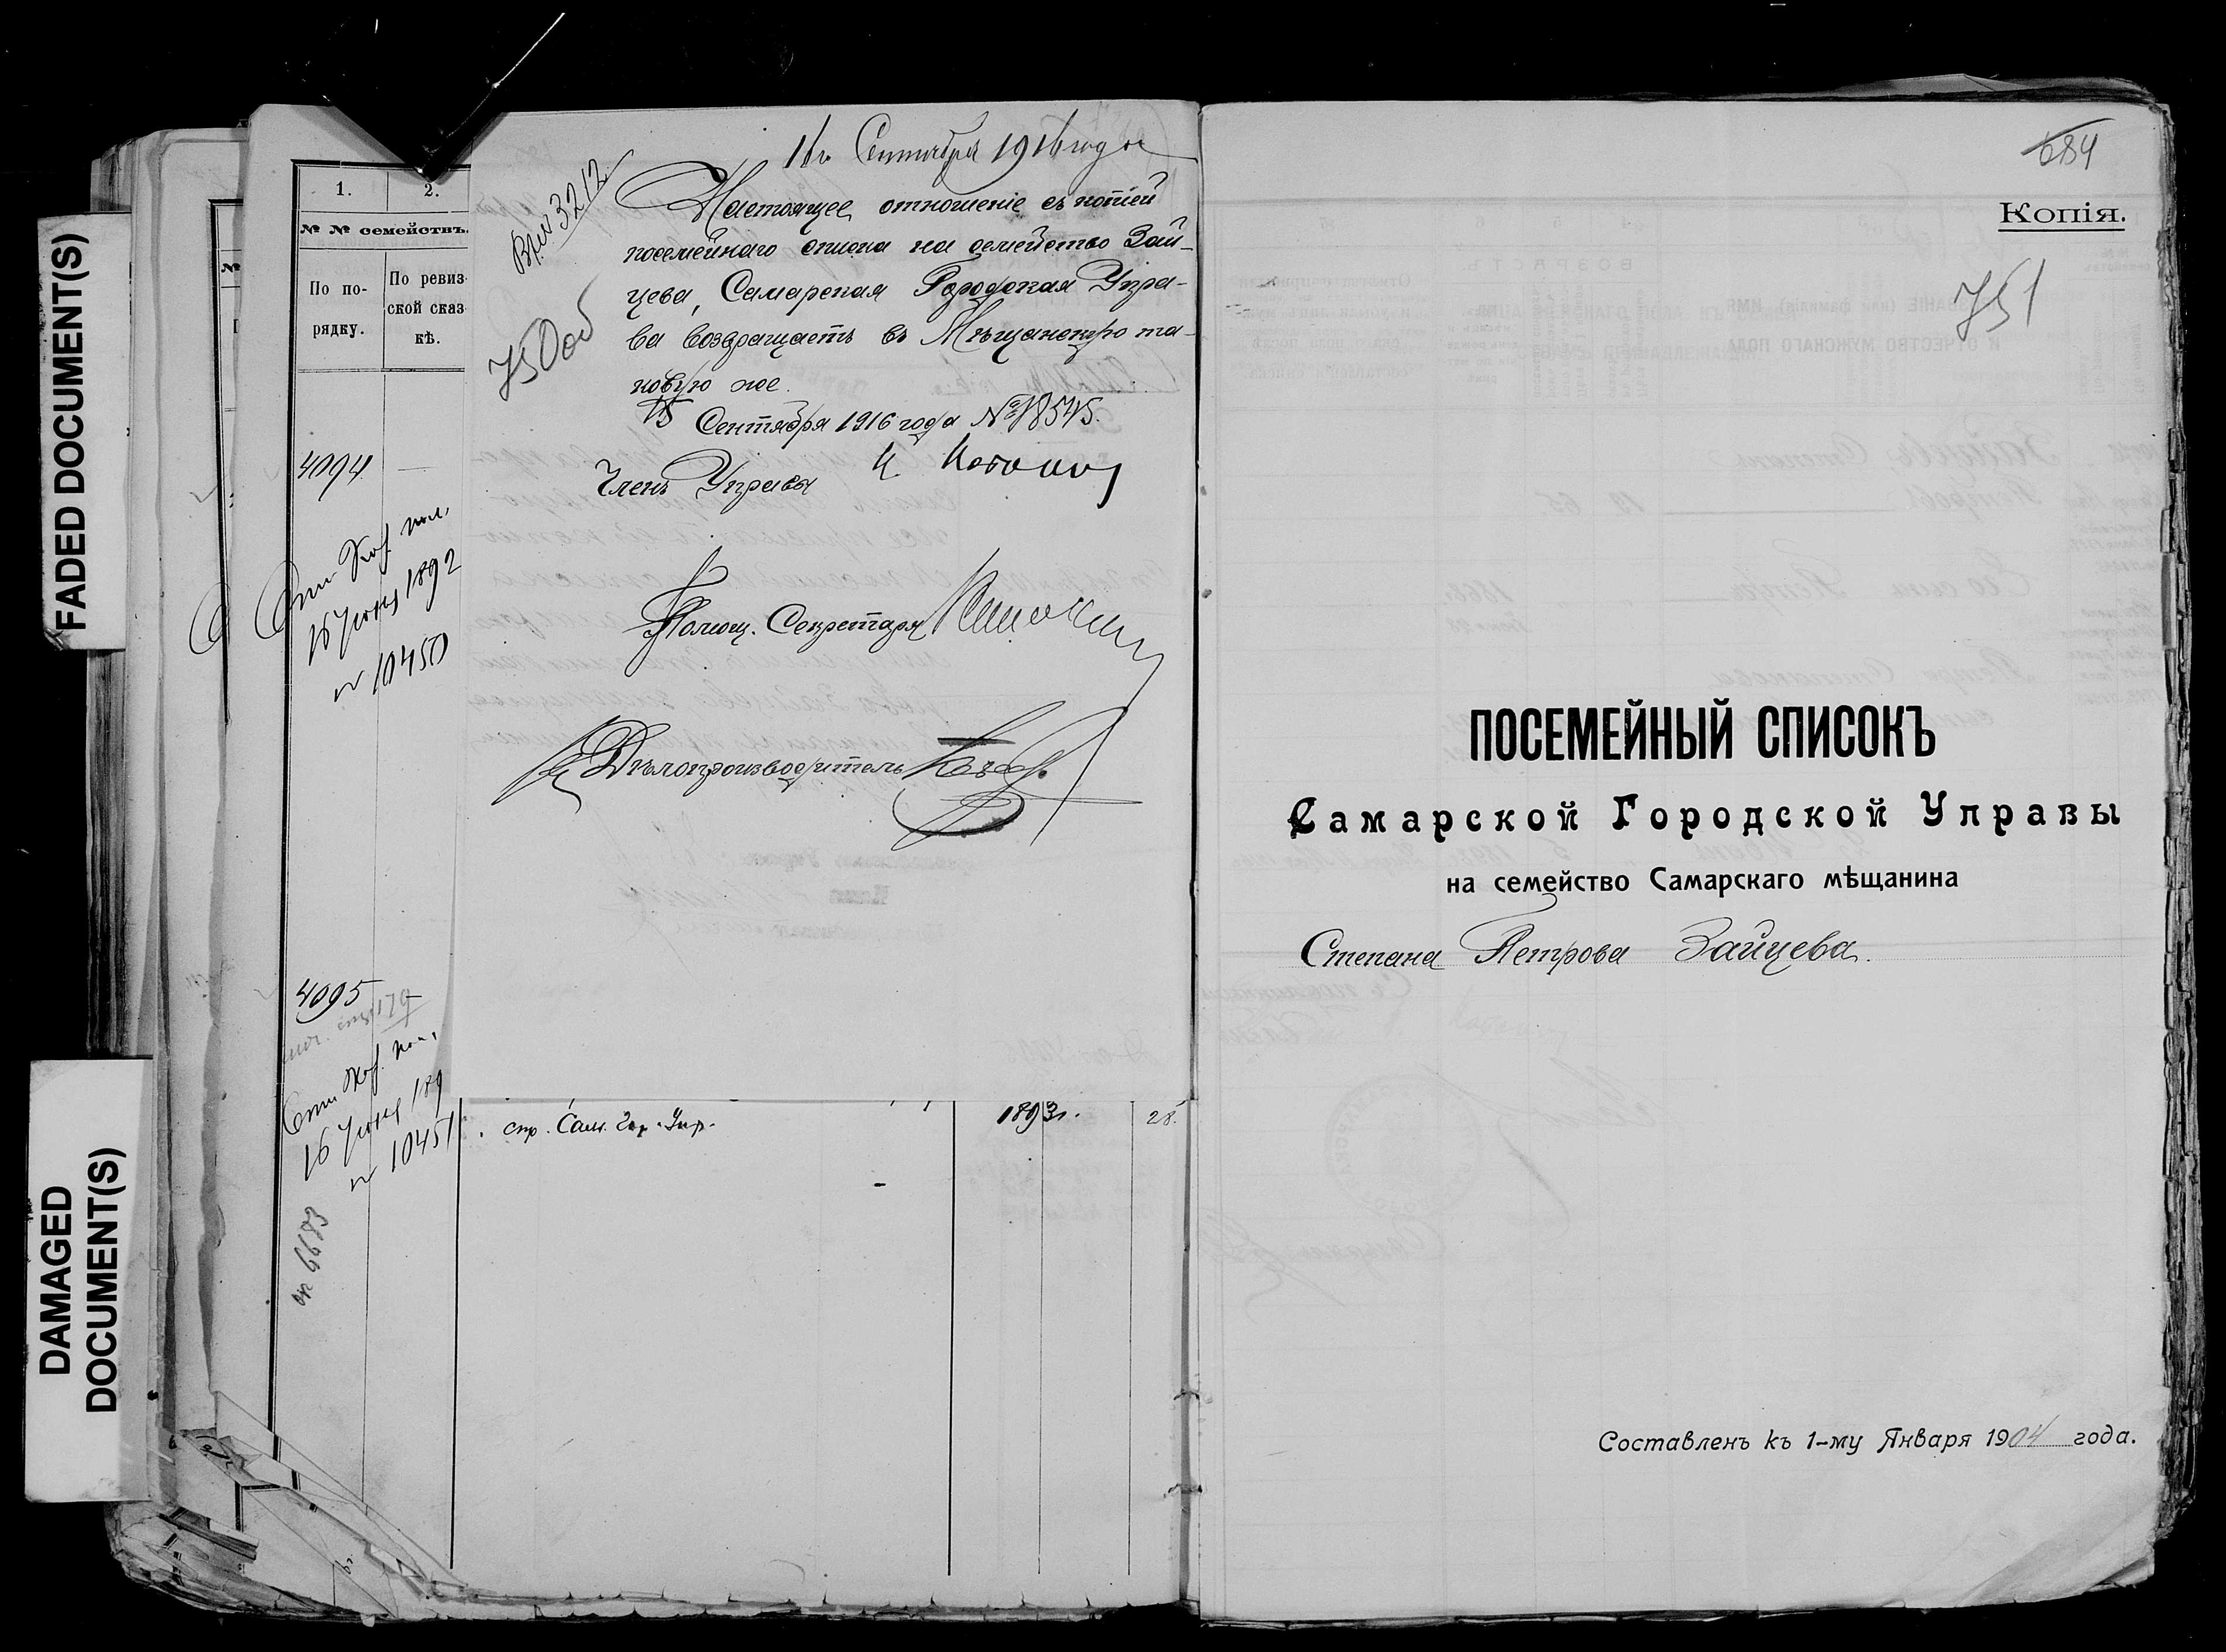 FADED DOCUMENT(S)
DAMAGED
DOCUMENT(S)
1. 2.
№ № семействъ.
По по-
рядку.
По ревиз
ской сказ
кѣ.
4094
16 Іюня 1892
№ 10450
4095
179
16 Іюня 189
№ 10451
6683
16 Сентября 1916 года
3212
750 об
Настоящее отношеніе съ копіей
посемейнаго списка на семейство Зай-
цева, Самарская Городская Упра-
ва возвращаетъ въ Мѣщанскую та-
ковую же.
15 Сентября 1916 года № 18545.
Членъ Управы
Помощ. Секретаря
Дѣлопроизводитель
стр. Сам. Гор. Упр.
1893 г.
28.
684
Копія.
751
ПОСЕМЕЙНЫЙ СПИСОКЪ
Самарской Городской Управы
на семейство Самарскаго мѣщанина
Степана Петрова Зайцева.
Составленъ къ 1-му Января 1904 года.